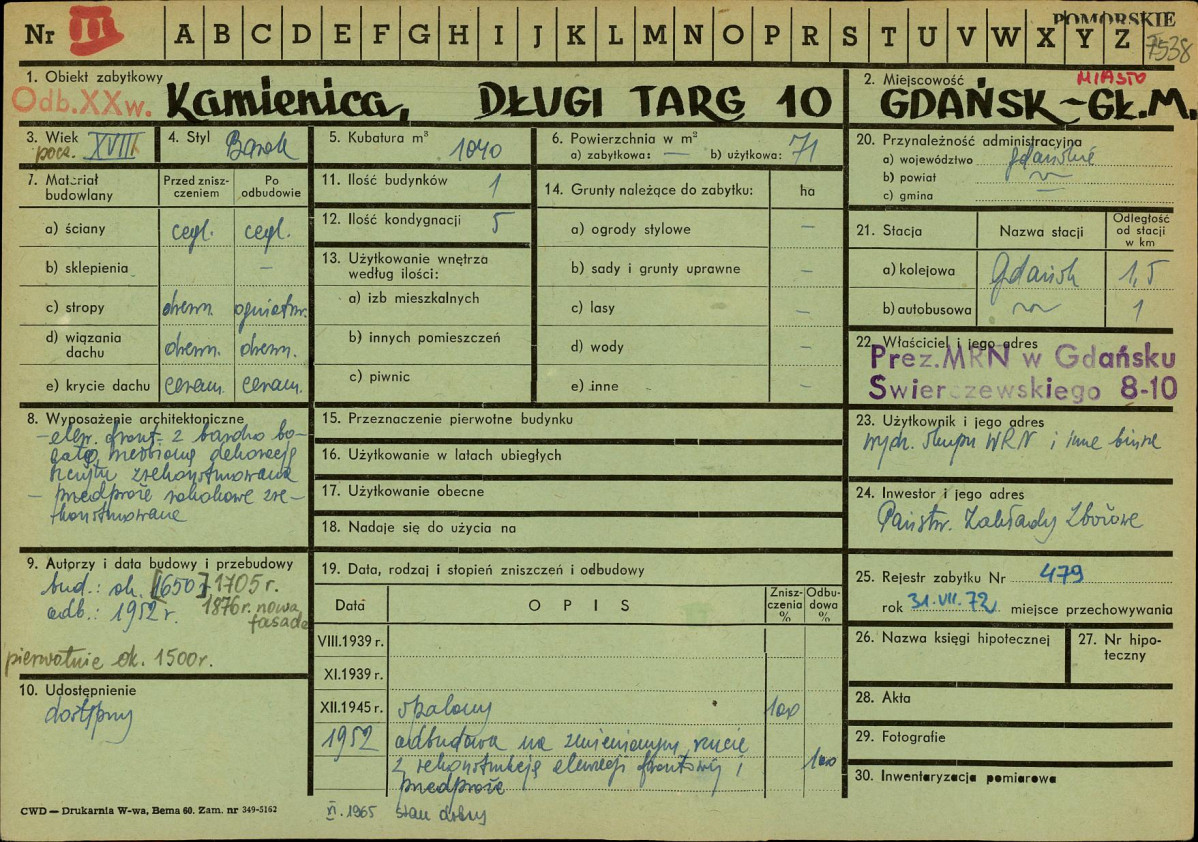 Nr III A B C D E F G H I J K L M N O P R S T U V W X Y Z
POMORSKIE
7538
1. Obiekt zabytkowy
Odb. XX w.
Kamienica, DŁUGI TARG 10
2. Miejscowość
MIASTO
GDAŃSK - GŁ. M.
3. Wiek pocz. XVIII
4. Styl Barok
5. Kubatura m³ 1040
6. Powierzchnia w m²
a) zabytkowa: — b) użytkowa: 71
7. Materiał budowlany
Przed zniszczeniem
Po odbudowie
a) ściany cegl. cegl.
b) sklepienia –
c) stropy drewn. ogniotrw.
d) wiązania dachu drewn. drewn.
e) krycie dachu ceram. ceram.
8. Wyposażenie architektoniczne
– elew. front. z bardzo bo-
gatą rzeźbioną dekoracją
szczytu zrekonstruowana
– przedproże rokokowe zre-
konstruowane
9. Autorzy i data budowy i przebudowy
bud.: ok. [1650] 1705 r.
odb.: 1952 r. 1876 r. nowa
fasada
pierwotnie ok. 1500 r.
10. Udostępnienie
dostępny
11. Ilość budynków 1
12. Ilość kondygnacji 5
13. Użytkowanie wnętrza
według ilości:
a) izb mieszkalnych
b) innych pomieszczeń
c) piwnic
14. Grunty należące do zabytku: ha
a) ogrody stylowe –
b) sady i grunty uprawne –
c) lasy –
d) wody –
e) inne –
15. Przeznaczenie pierwotne budynku
16. Użytkowanie w latach ubiegłych
17. Użytkowanie obecne
18. Nadaje się do użycia na
19. Data, rodzaj i stopień zniszczeń i odbudowy
Data OPIS Zniszczenia % Odbudowa %
VIII.1939 r.
XI.1939 r.
XII.1945 r. spalony 100
1952 odbudowa na zmienionym rzucie
z rekonstrukcją elewacji frontowej i 100
przedproże
VI.1965 stan dobry
20. Przynależność administracyjna
a) województwo gdańskie
b) powiat
c) gmina —
21. Stacja Nazwa stacji Odległość od stacji w km
a) kolejowa Gdańsk 1,5
b) autobusowa 1
22. Właściciel i jego adres
Prez. MRN w Gdańsku
Swierczewskiego 8-10
23. Użytkownik i jego adres
wydz. skupu WRN i inne biura
24. Inwestor i jego adres
Państw. Zakłady Zbożowe
25. Rejestr zabytku Nr 479
rok 31.VII.72 miejsce przechowywania
26. Nazwa księgi hipotecznej
27. Nr hipoteczny
28. Akta
29. Fotografie
30. Inwentaryzacja pomiarowa
CWD — Drukarnia W-wa, Bema 60. Zam. nr 349-5162